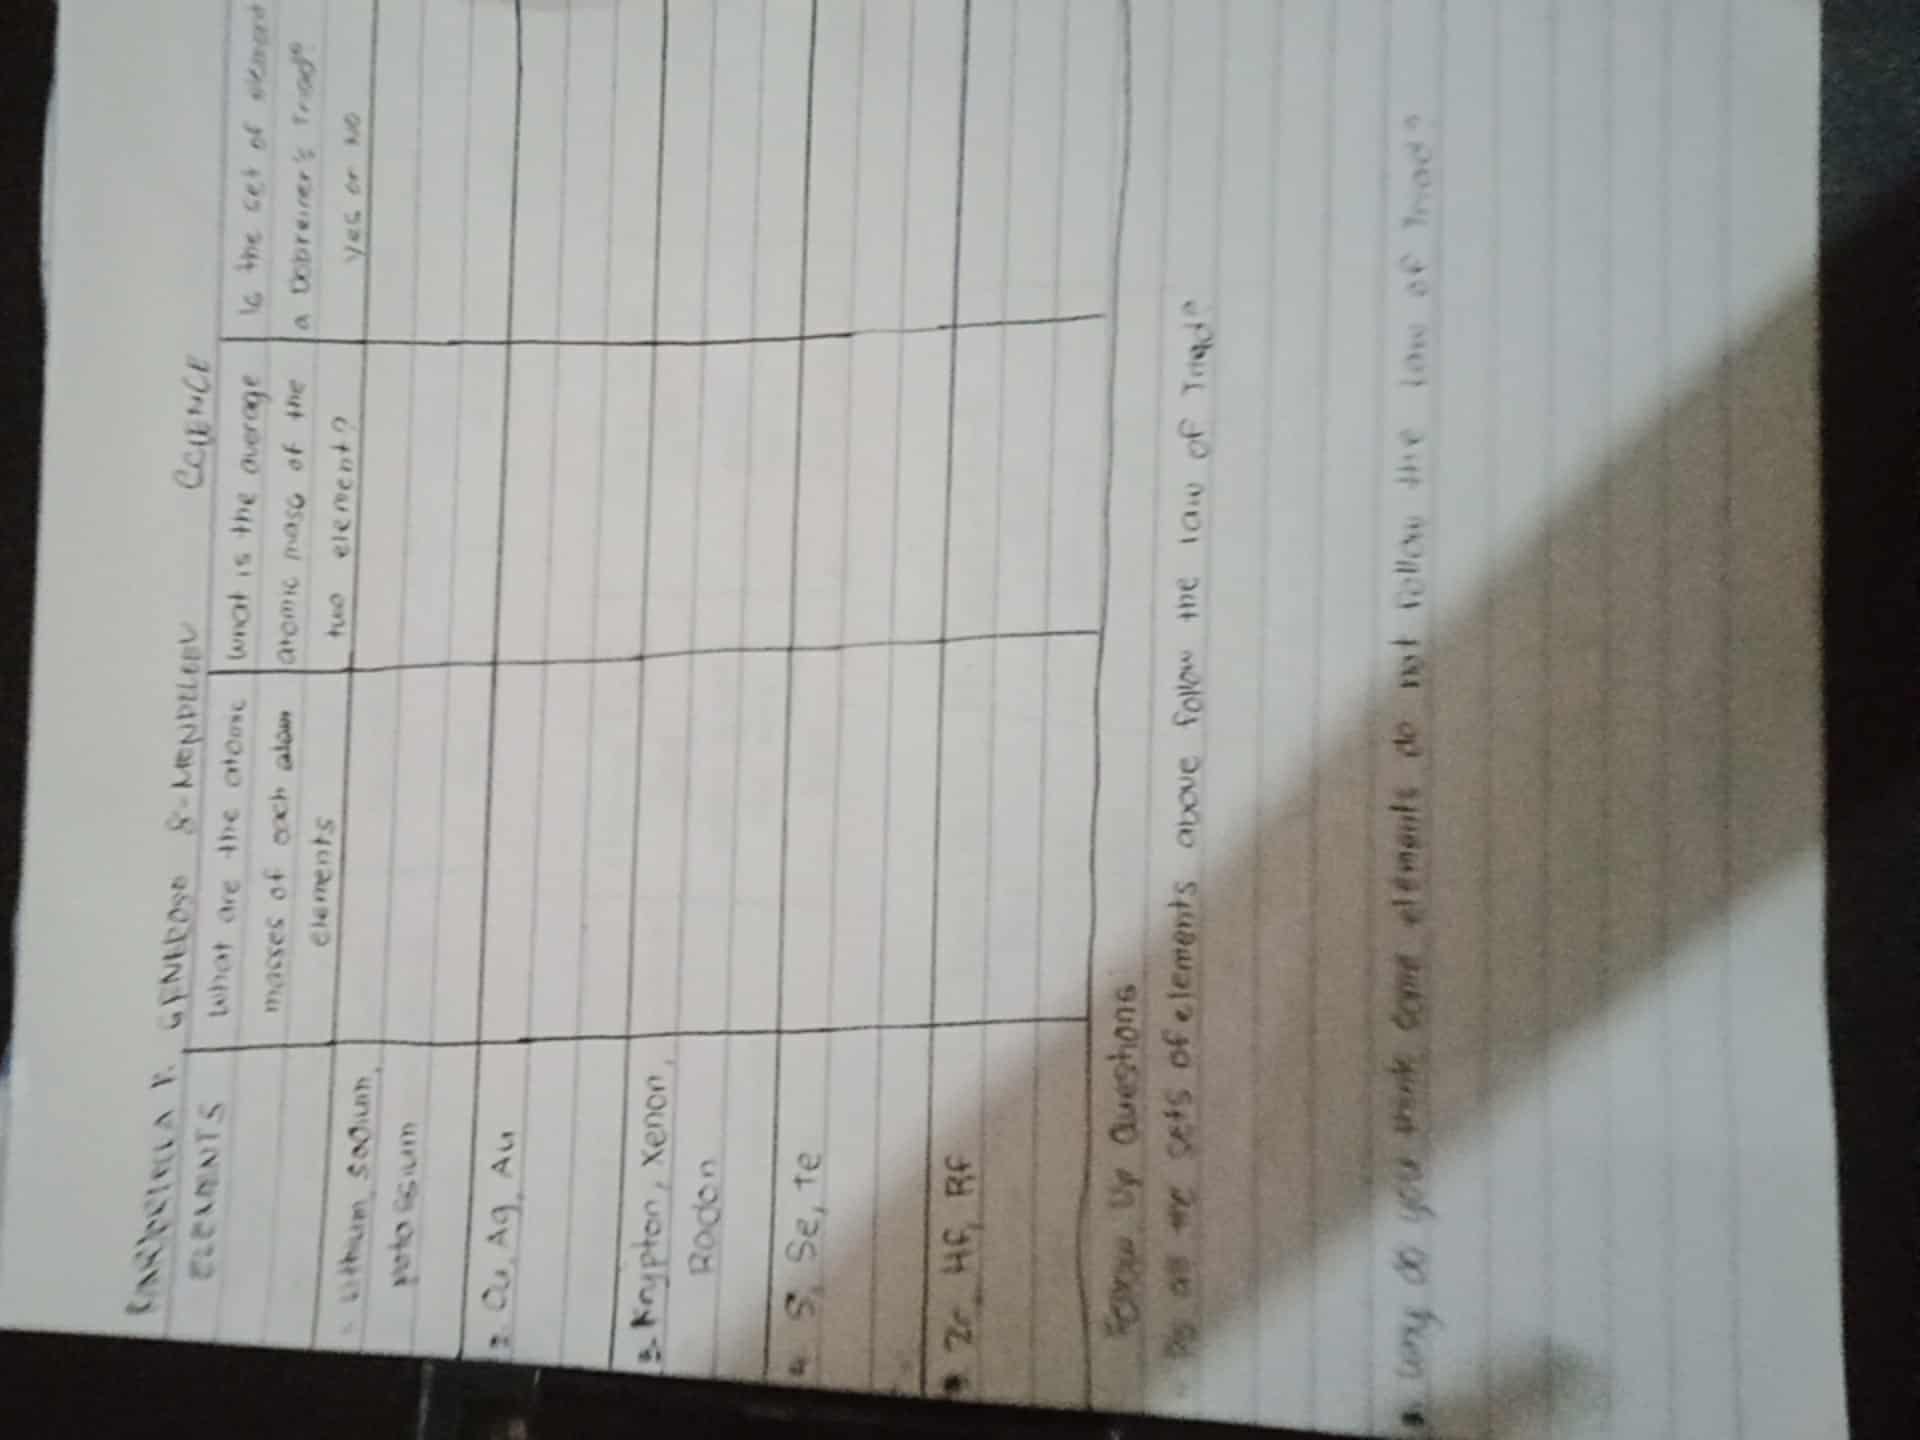 GENEROSO 8-MENDELEEV SCIENCE
ELEMENTS
What are the atomic
masses of each atom
elements
what is the average
atomic mass of the
two element?
Is the set of element
a Dobreiner's Triad?
Yes or No
Lithium, sodium,
potassium
2. Cu, Ag, Au
3. Krypton, Xenon,
Radon
4. S, Se, Te
Zr, Hf, Rf
Follow Up Questions
Do all the sets of elements above follow the law of Triad?
why do you think some elements do not follow the law of Triad?